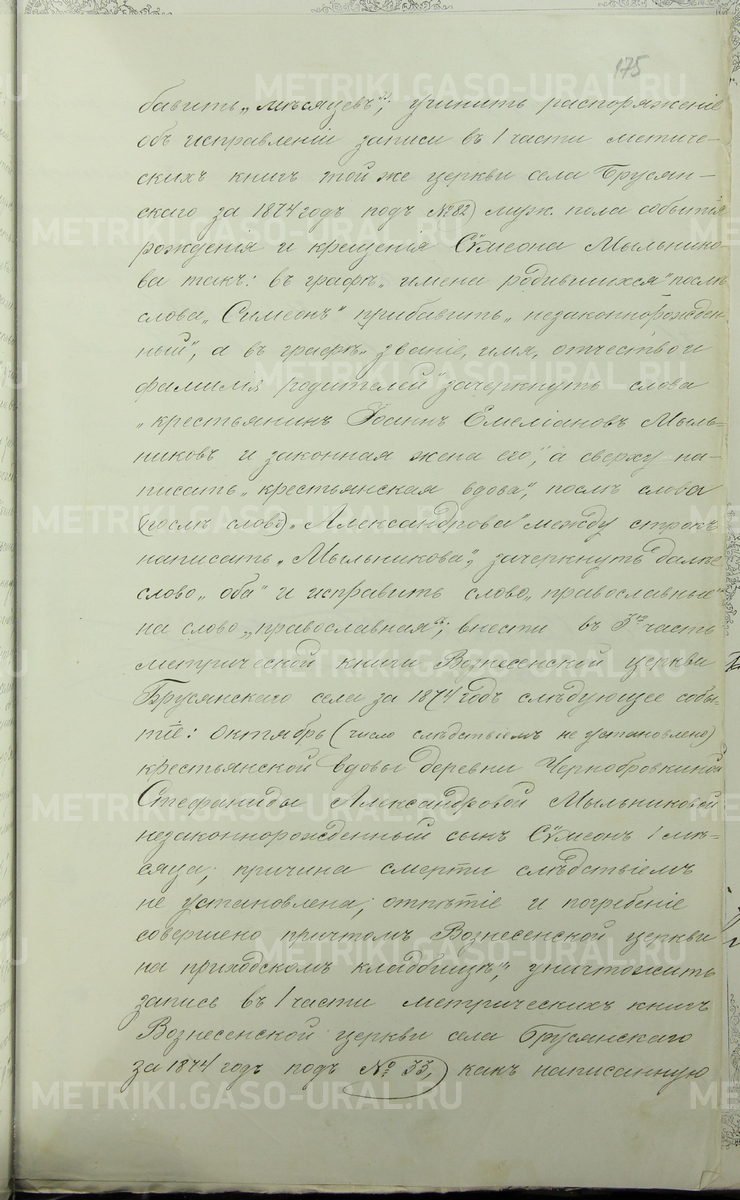 175
бавить „мѣсяцевъ“; учинить распоряженіе
объ исправленіи записи въ 1 части метриче-
скихъ книгъ той же церкви села Брусян-
скаго за 1874 годъ подъ № 82) муж. пола событія
рожденія и крещенія Сѵмеона Мыльнико-
ва такъ: въ графѣ „имена родившихся“ послѣ
слова „Симеонъ“ прибавить „незаконнорожден-
ный“, а въ графѣ „званіе, имя, отчество и
фамилія родителей“ зачеркнуть слова
„крестьянинъ Іоаннъ Емеліановъ Мыль-
никовъ и законная жена его“, а сверху на-
писать „крестьянская вдова“, послѣ слова
(послѣ слова) „Александрова“ между строкъ
написать „Мыльникова“, зачеркнуть далѣе
слово „оба“ и исправить слово „православные“
на слово „православная“; внести въ 3ю часть
метрической книги Вознесенской церкви
Брусянскаго села за 1874 годъ слѣдующее собы-
тіе: октябрь (число слѣдствіемъ не установлено)
крестьянской вдовы деревни Чернобровкиной
Стефаниды Александровой Мыльниковой
незаконнорожденный сынъ Сѵмеонъ 1 мѣ-
сяца, причина смерти слѣдствіемъ
не установлена; отпѣтіе и погребеніе
совершено причтомъ Вознесенской церкви
на приходскомъ кладбищѣ“; уничтожить
запись въ 1 части метрическихъ книгъ
Вознесенской церкви села Брусянскаго
за 1874 годъ подъ № 33, какъ написанную
METRIKI.GASO-URAL.RU